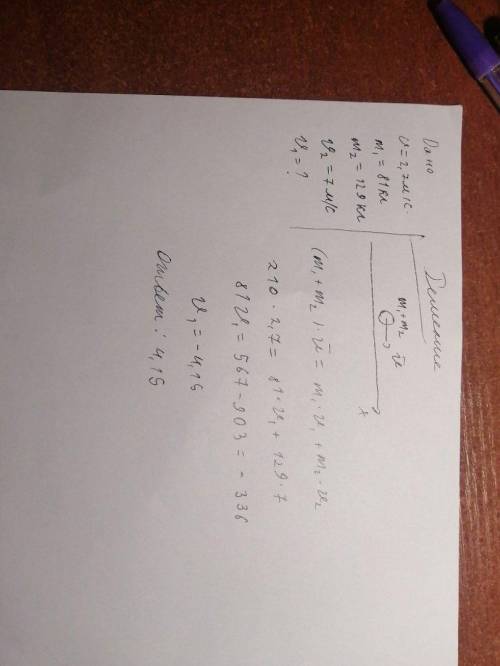 Дано
υ = 2,7 м/с.
m₁ = 81 кг
m₂ = 129 кг
υ₂ = 7 м/с
υ₁ = ?
Решение
m₁+m₂ υ̅
x
(m₁ + m₂) · υ̅ = m₁ · υ₁ + m₂ · υ₂
210 · 2,7 = 81 · υ₁ + 129 · 7
81υ₁ = 567 - 903 = - 336
υ₁ = - 4,15
Ответ : 4,15